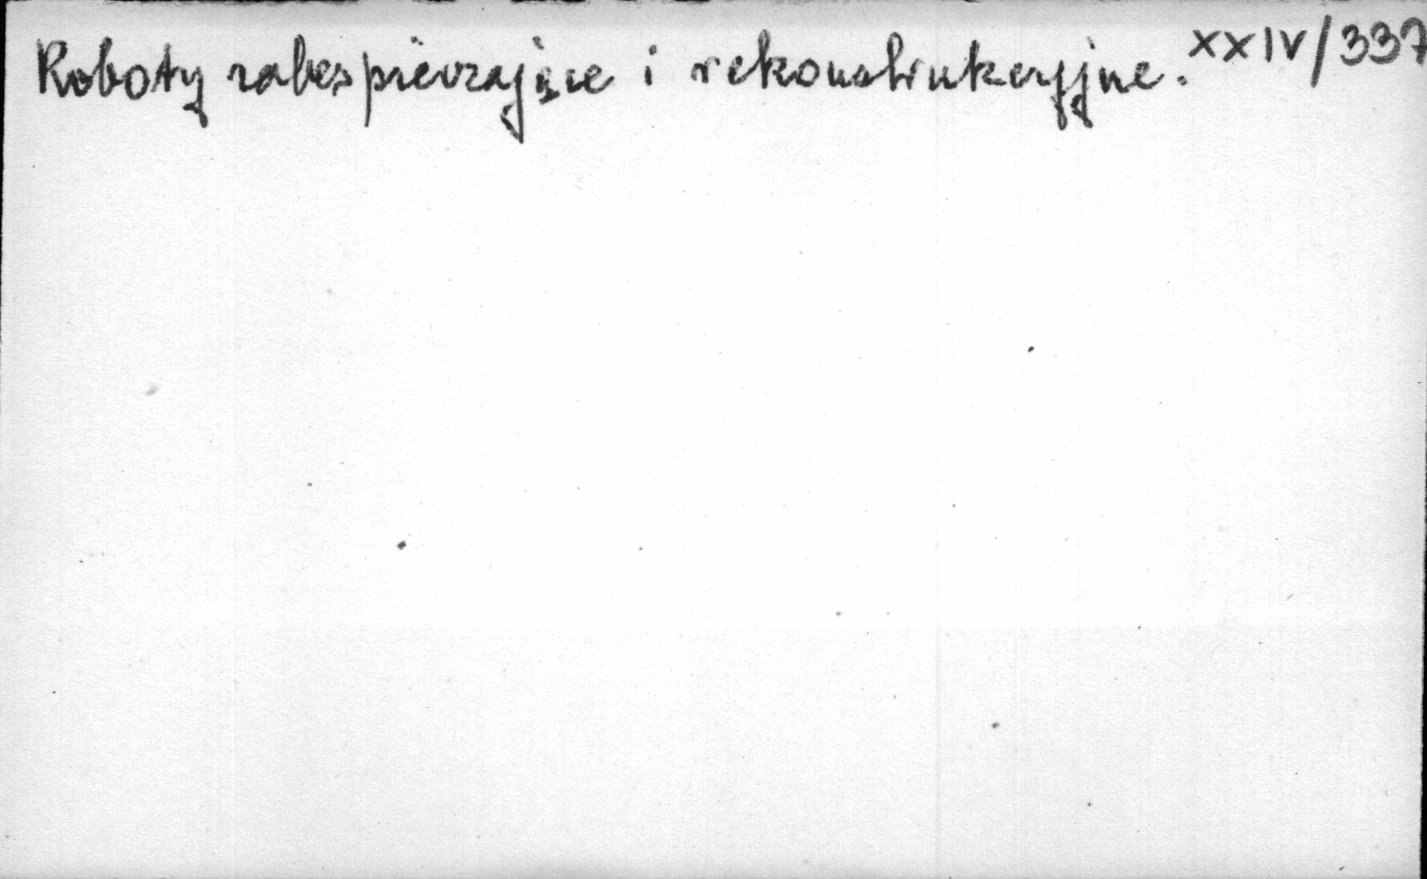 Roboty zabezpieczające i rekonstrukcyjne. XXIV/337